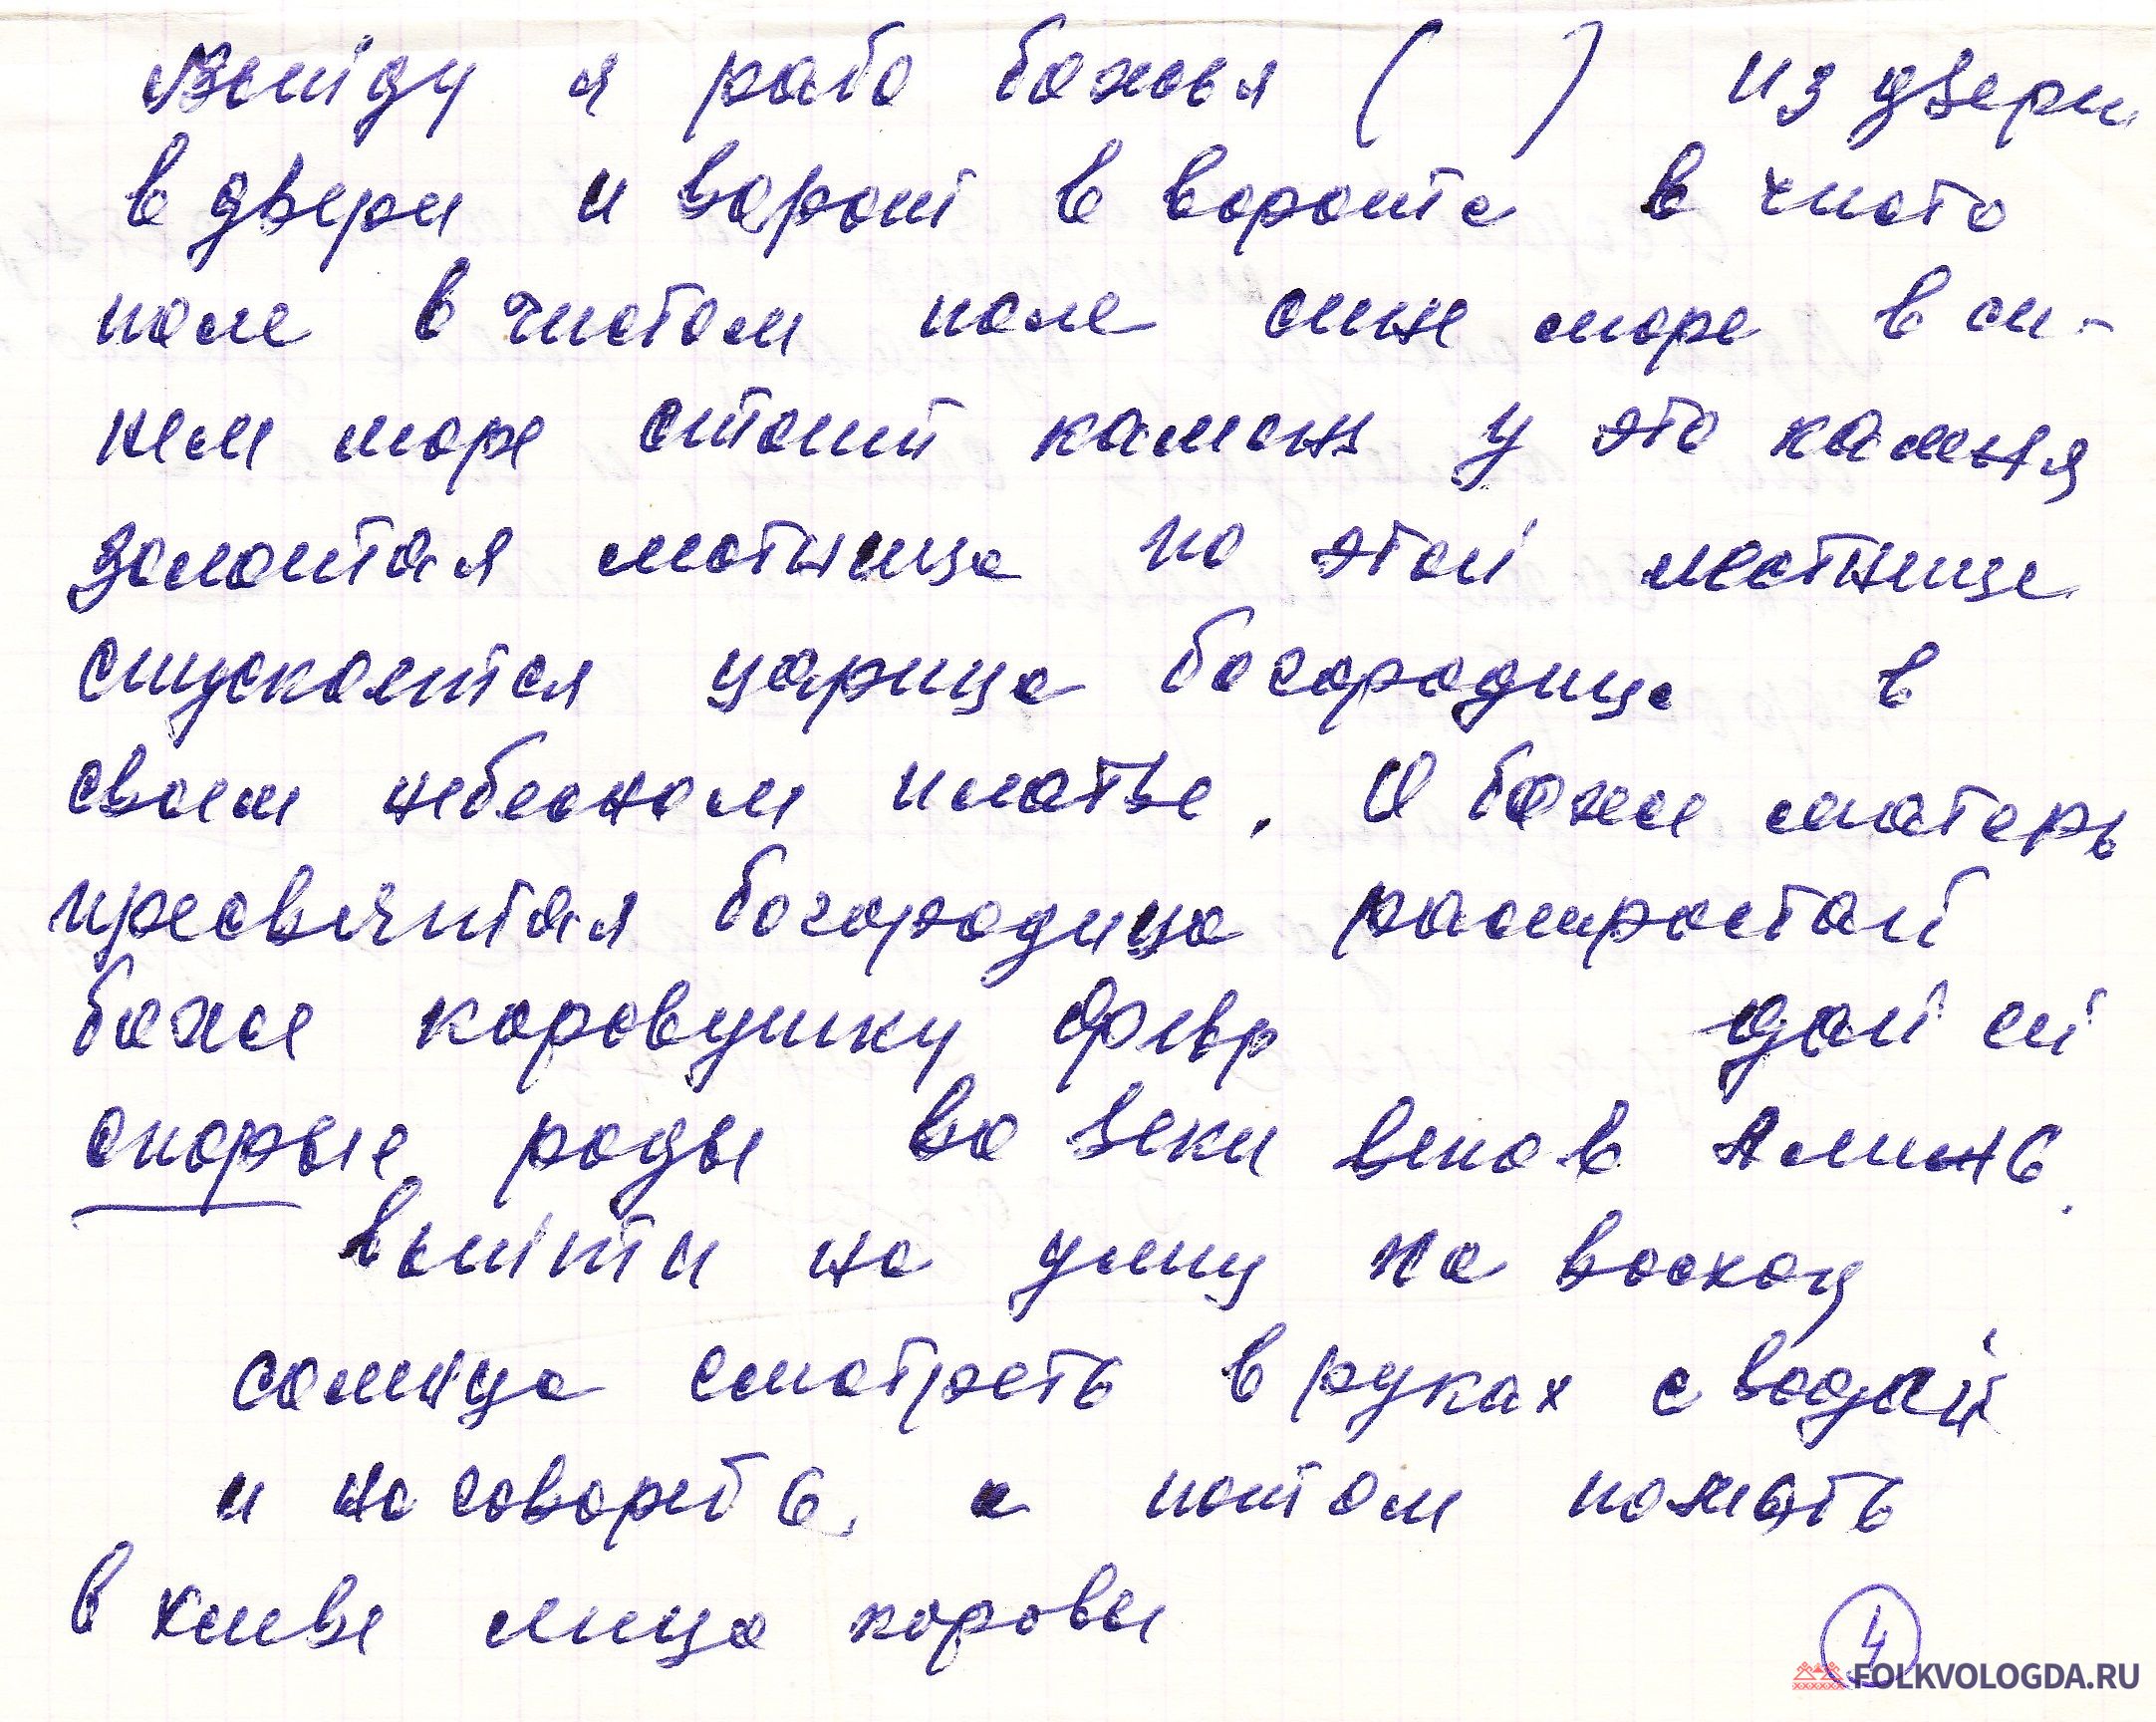 Выйду я раба божья ( ) из двери
в двери и ворот в ворота в чисто
поле в чистом поле сине море в си-
нем море стоит камень у это камня
золотая лестница по этой лестнице
спускается царица богородица в
своем небесном платье. О боже матерь
пресвячитая богородица распростай
боже коровушку дай ей
скорые роды во веки веков Аминь.
выйти на улицу на восход
солнца смотреть в руках с водой
и наговореть а потом помать
в хливе лица коровы
4
FOLKVOLOGDA.RU